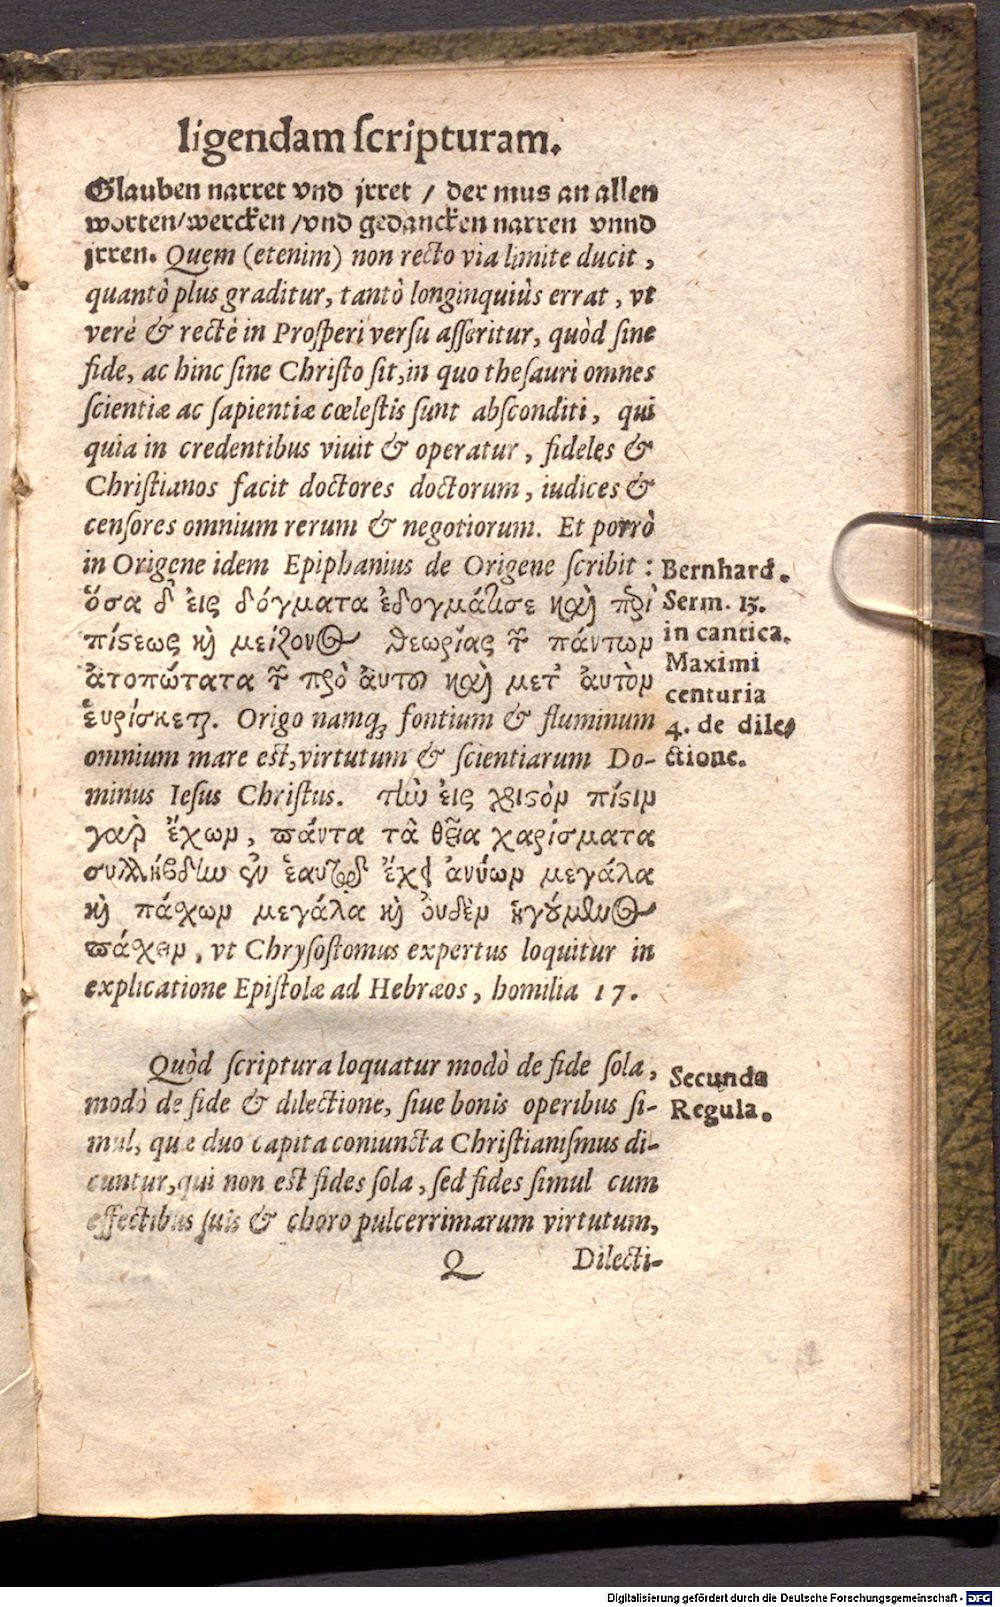 ligendam ſcripturam.
Glauben narret vnd jrret / der mus an allen
worten/wercken /vnd gedancken narren vnnd
jrren. Quem (etenim) non recto via limite ducit,
quantò plus graditur, tantò longinquiùs errat, vt
verè & rectè in Proſperi verſu aſſeritur, quòd ſine
fide, ac hinc ſine Chriſto ſit, in quo theſauri omnes
ſcientiæ ac ſapientiæ cœleſtis ſunt abſconditi, qui
quia in credentibus viuit & operatur, fideles &
Chriſtianos facit doctores doctorum, iudices &
cenſores omnium rerum & negotiorum. Et porrò
in Origene idem Epiphanius de Origene ſcribit:
ὅσα δ' ἐις δόγματα ἐδογμάτισε καὶ περὶ
πίϛεως κὶ μείζονος θεωρίας τῶν πάντων
ἀτοπώτατα τῶν πρὸ ἀυτοῦ καὶ μετ' ἀυτὸν
ἑυρίσκεται. Origo namq; fontium & fluminum
omnium mare est, virtutum & ſcientiarum Do-
minus Ieſus Chriſtus. τὴν ἐις χριϛὸν πίϛιν
γαρ ἔχων, πάντα τὰ θεῖα χαρίσματα
συλλήβδην ἐν ἑαυτῷ ἔχει ἀνύων μεγάλα
κὶ πάσχων μεγάλα κὶ ὀυδὲν ἡγούμενος
πάσχειν, vt Chryſoſtomus expertus loquitur in
explicatione Epiſtolæ ad Hebræos, homilia 17.
Bernhard.
Serm. 15.
in cantica.
Maximi
centuria
4. de dile-
ctione.
Quòd ſcriptura loquatur modò de fide ſola,
modò de fide & dilectione, ſiue bonis operibus ſi-
mul, quæ duo capita coniuncta Chriſtianiſmus di-
cuntur, qui non est fides ſola, ſed fides ſimul cum
effectibus ſuis & choro pulcerrimarum virtutum,
Secunda
Regula.
Q Dilecti-
Digitalisierung gefördert durch die Deutsche Forschungsgemeinschaft - DFG